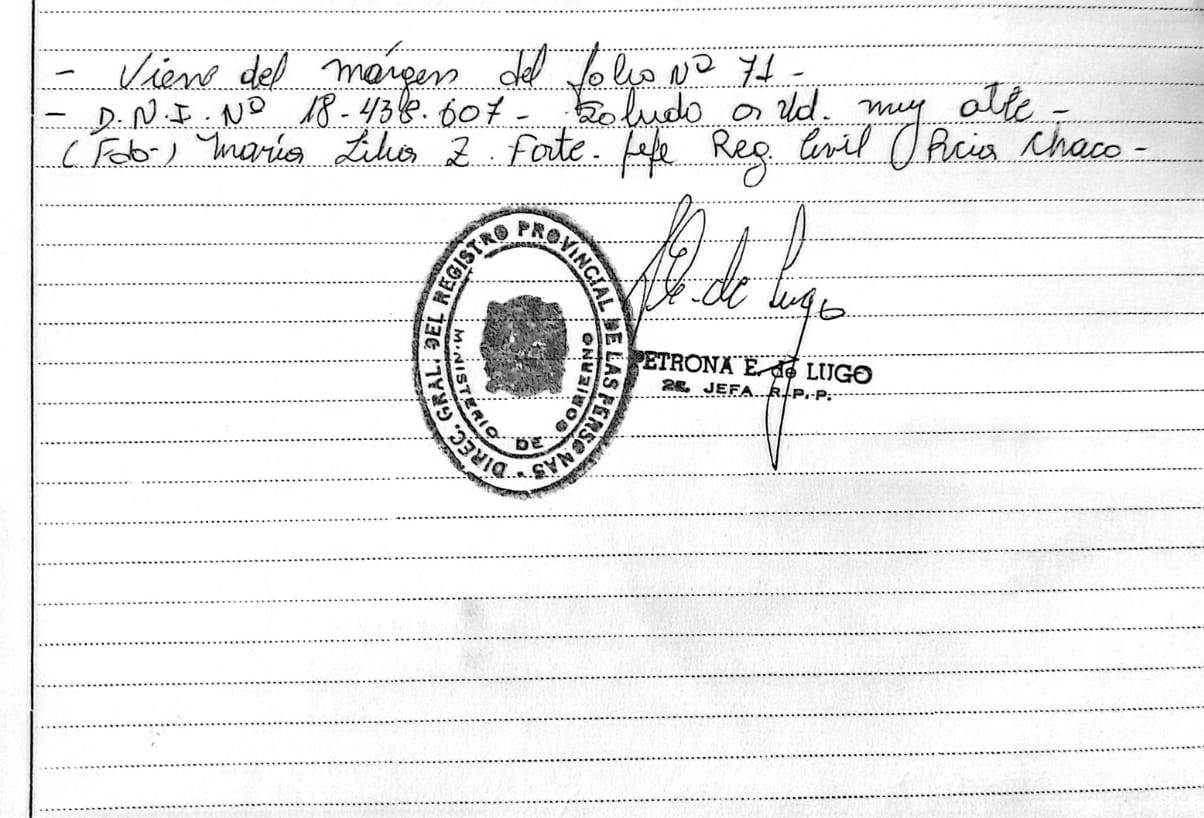 - Viene del márgen del folio Nº 71 -
- D.N.I. Nº 18.438.607 - Saludo a Ud. muy atte -
(Fdo.) María Lilia Z. Forte. Jefe Reg. Civil Pcia Chaco -
DIREC. GRAL. DEL REGISTRO PROVINCIAL DE LAS PERSONAS
MINISTERIO DE GOBIERNO
E. de Lugo
PETRONA E. de LUGO
2ª. JEFA R.P.P.